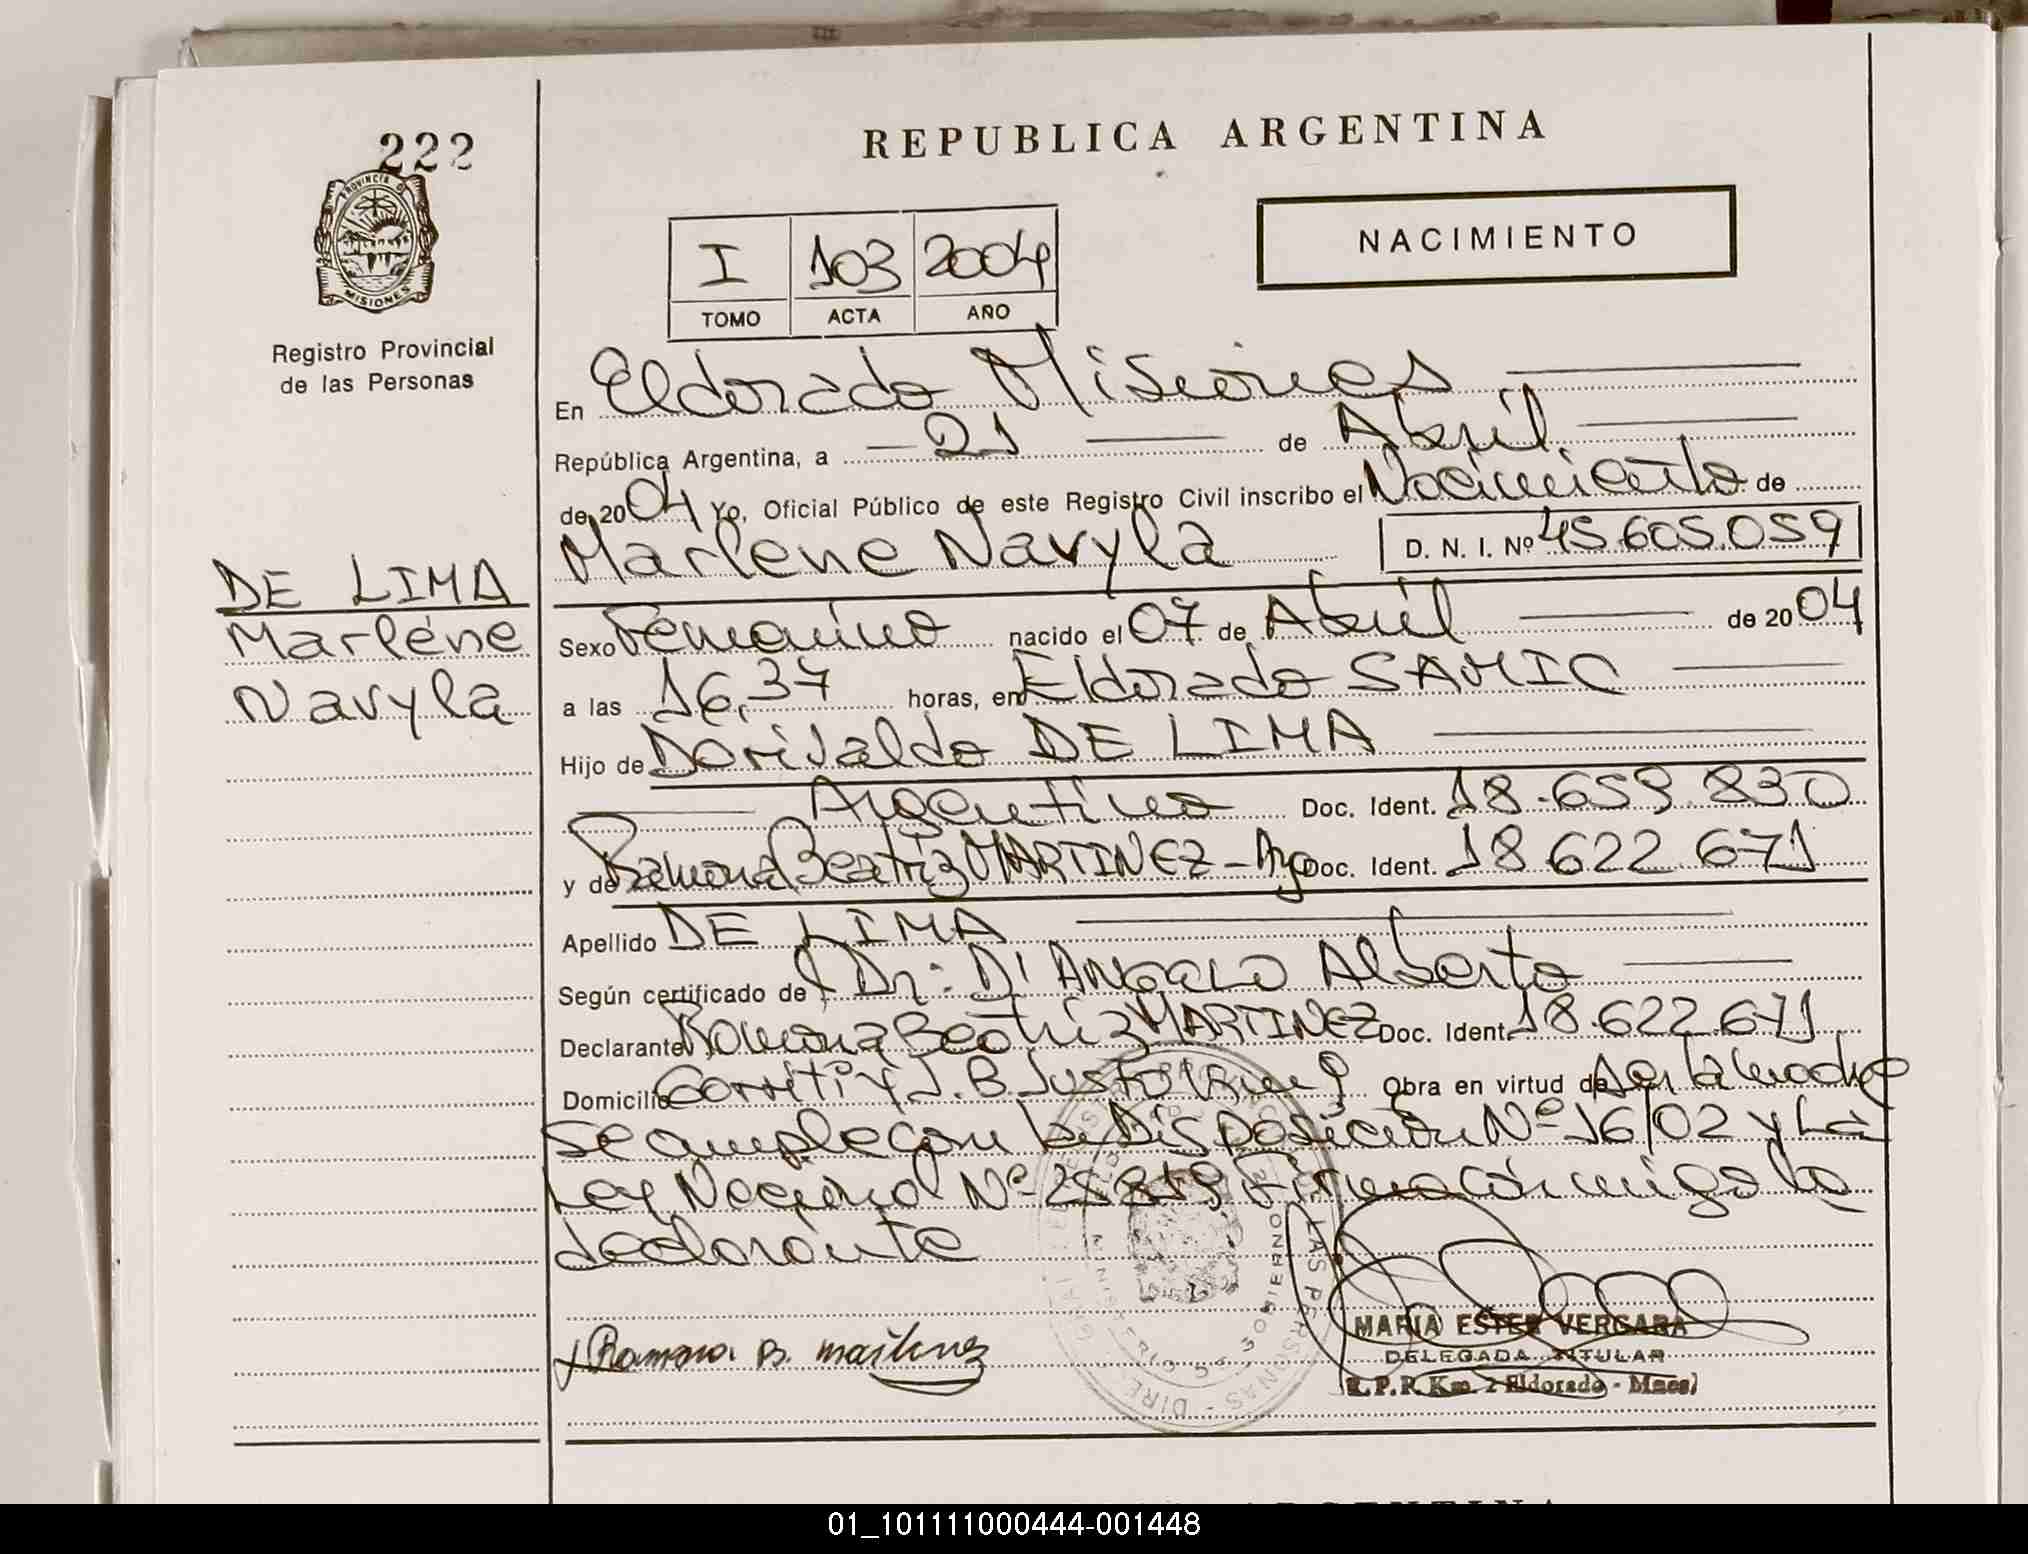 222
PROVINCIA DE
MISIONES
Registro Provincial
de las Personas
DE LIMA
Marlene
Navyla
REPUBLICA ARGENTINA
NACIMIENTO
I 103 2004
TOMO ACTA AÑO
En Eldorado Misiones
República Argentina, a 21 de Abril
de 2004 Yo, Oficial Público de este Registro Civil inscribo el Nacimiento de
Marlene Navyla D. N. I. Nº 45.605.059
Sexo Femenino nacido el 07 de Abril de 2004
a las 16,37 horas, en Eldorado SAMIC
Hijo de Dorivaldo DE LIMA
Argentino Doc. Ident. 18.659.830
y de Ramona Beatriz MARTINEZ - Arg Doc. Ident. 18.622.671
Apellido DE LIMA
Según certificado de Dr: D'ANGELO Alberto
Declarante Ramona Beatriz MARTINEZ Doc. Ident. 18.622.671
Domicilio Gorriti y J.B. Justo Km 9 Obra en virtud de ser la madre
se cumple con la Disposición Nº 16/02 y La
Ley Nacional Nº 25819 Firma conmigo la
declarante
Ramona B. martinez
MARIA ESTER VERGARA
DELEGADA TITULAR
R.P.P. Km. 2 Eldorado - Mnes)
01_101111000444-001448